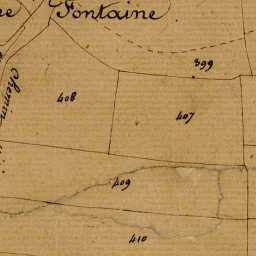 Fontaine
399
408
407
Chemin
409
410